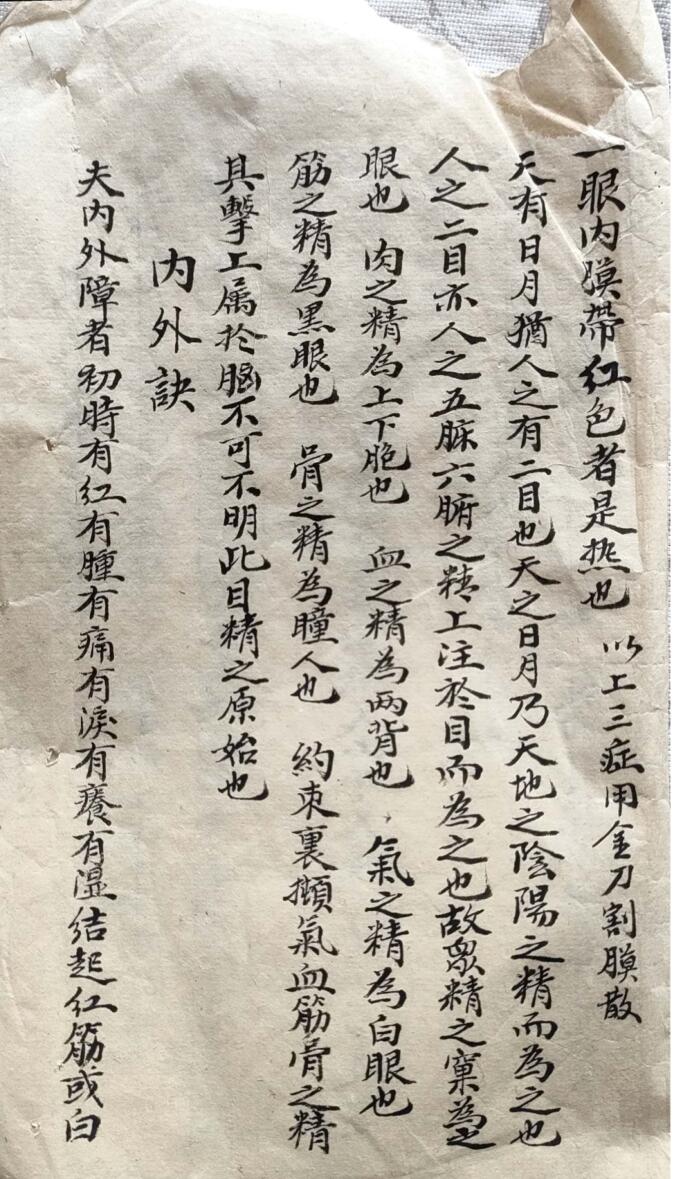 一眼内膜帶红色者是热也 以上三症用金刀割膜散
天有日月猶人之有二目也天之日月乃天地之陰陽之精而為之也
人之二目亦人之五臟六腑之精上注於目而為之也故眾精之窠為之
眼也 肉之精為上下胞也 血之精為两背也 氣之精為白眼也
筋之精為黒眼也 骨之精為瞳人也 約束裏擷氣血筋骨之精
具擊上属於脳不可不明此目精之原始也
内外訣
夫内外障者初時有红有腫有痛有淚有癢有濕结起红筋或白